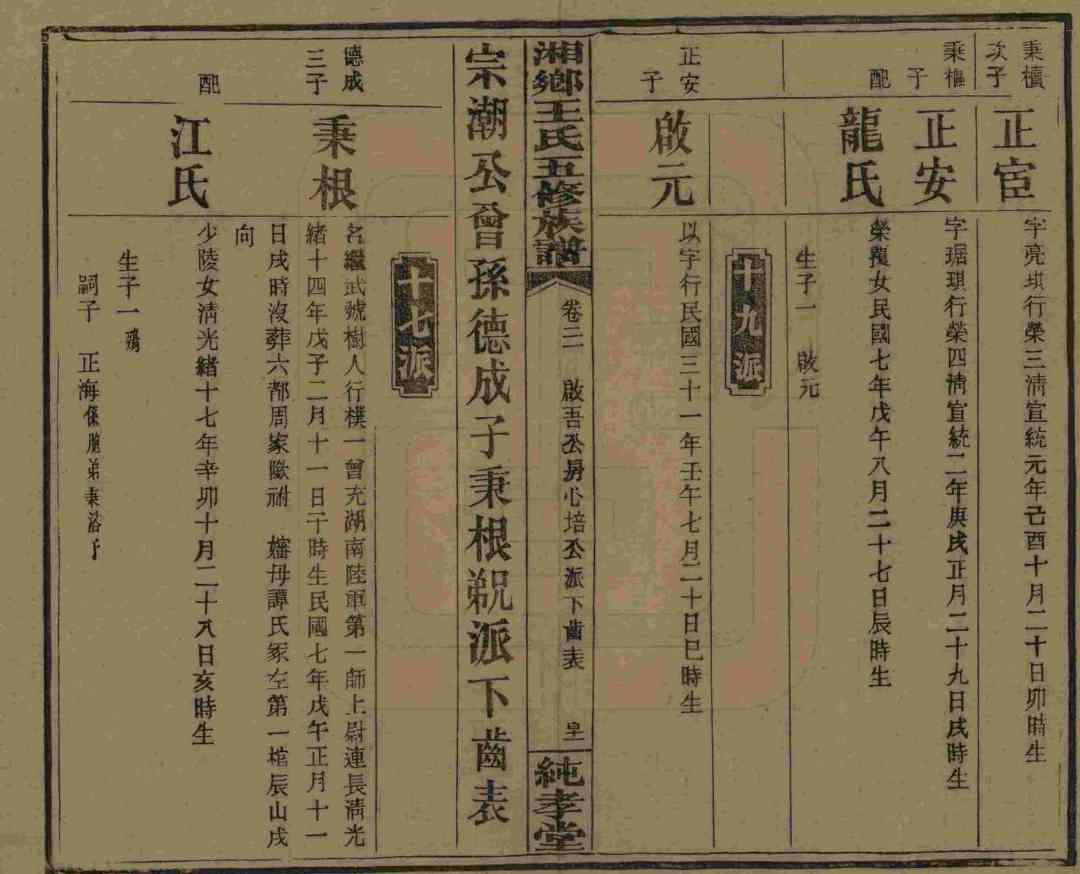 秉櫝次子
正宦
字亮琪行榮三清宣統元年己酉十月二十日卯時生
秉樞子
正安
字琚琪行榮四清宣統二年庚戌正月二十九日戌時生
配
龍氏
榮 女民國七年戊午八月二十七日辰時生
生子一 啟元
十九派
正安子
啟元
以字行民國三十一年壬午七月二十日巳時生
湘鄉王氏五修族譜
卷二 啟吾公房心培公派下齒表
純孝堂
宗潮公曾孫德成子秉根 派下齒表
十七派
德成三子
秉根
名繼武號樹人行樸一曾充湖南陸軍第一師上尉連長清光
緒十四年戊子二月十一日子時生民國七年戊午正月十一
日戌時沒葬六都周家 祔 嬸母譚氏冢左第一棺辰山戌
向
配
江氏
少陵女清光緒十七年辛卯十月二十八日亥時生
生子一 殤
嗣子 正海係胞弟秉洛子